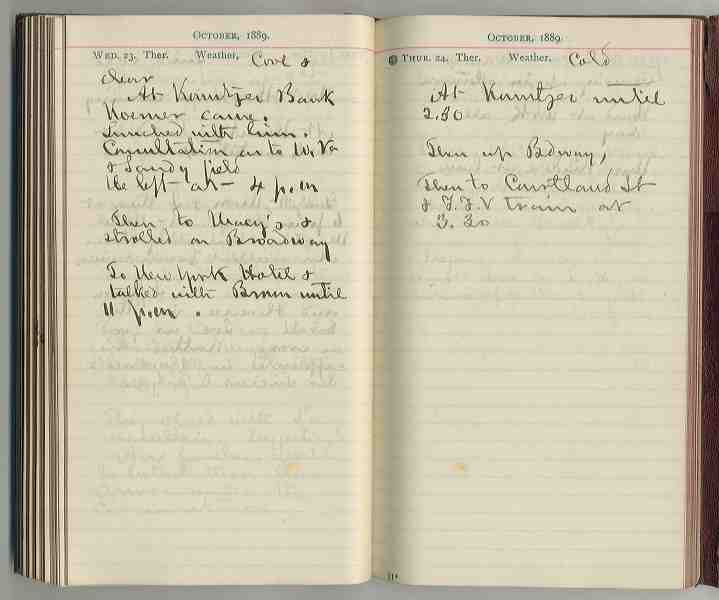 OCTOBER, 1889.
WED. 23. Ther. Weather, Cool &
clear
At Kountzer Bank
Koerner came.
Lunched with him.
Consultation as to W. Va
& Sandy field
He left - at - 4 p.m
Then to Macy's &
strolled on Broadway
To New York Hotel &
talked with Brown until
11 p.m.
OCTOBER, 1889.
THUR. 24. Ther. Weather. Cold
At Kountzer until
2.30
Then up Bdway,
Then to Courtland St
& F.F.V train at
3.30